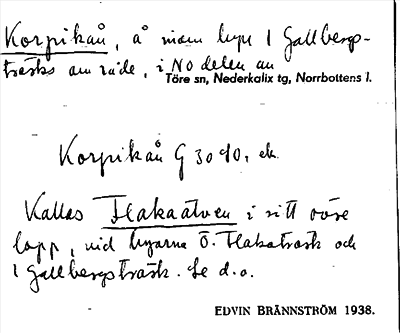 Korpikån, å inom byn I Gallbergs-
träsks område, i NO delen av
Töre sn, Nederkalix tg, Norrbottens l.
Korpikån G 3090, ek.
Kallas Flakaälven i sitt övre
lopp, vid byarna Ö. Flakaträsk och
I Gallbergsträsk. Se d.o.
EDVIN BRÄNNSTRÖM 1938.